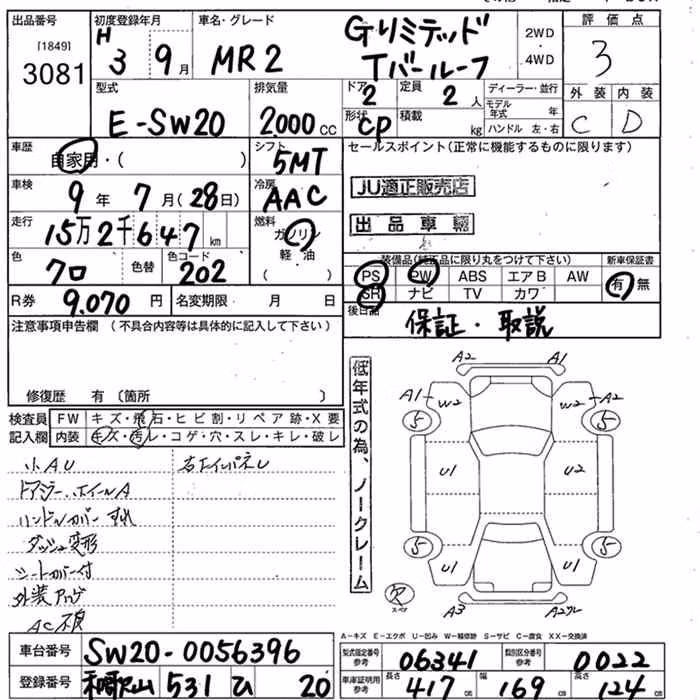 出品番号
[1849]
3081
初度登録年月
H 3 9月
車名・グレード
MR2
Gリミテッド
Tバールーフ
2WD
・
4WD
評価点
3
型式
E-SW20
排気量
2000 cc
ドア
2
定員
2 人
ディーラー・並行
モデル年式 年
形状
CP
積載
kg
ハンドル 左・右
外装 内装
C D
車歴
自家用・( )
シフト
5MT
セールスポイント(正常に機能するものに限ります)
車検
9年 7月(28日)
冷房
AAC
JU適正販売店
走行
15万2千647 km
燃料
ガソリン
軽・油
( )
出品車輛
色
クロ
色替
色コード
202
装備品(純正品に限り丸をつけて下さい)
新車保証書
PS PW ABS エアB AW
有・無
SR ナビ TV カワ
R券 9.070 円
名変期限 月 日
後日品
保証・取説
注意事項申告欄(不具合内容等は具体的に記入して下さい)
修復歴 有(箇所 )
検査員
記入欄
FW キズ・飛石・ヒビ割・リペア跡・X要
内装 キズ・汚レ・コゲ・穴・スレ・キレ・破レ
小AU
ドアミラー、ホイールA
ハンドルカバー すれ
ダッシュ変形
シートカバー付
AC不良
低年式の為、ノークレーム
A2 A1
A1 W2 W2 A2
5 5
U1 U2
5 5
U1 U1
欠
スペア
A3
A-キズ E-エクボ U-凹み W-補修跡 S-サビ C-腐食 XX-交換済
車台番号 SW20-0056396
登録番号 和歌山 531 ひ 20
型式指定番号
参考
06341
類別区分番号
参考
0022
車庫証明用
参考
長さ 417 cm
幅 169 cm
高さ 124 cm